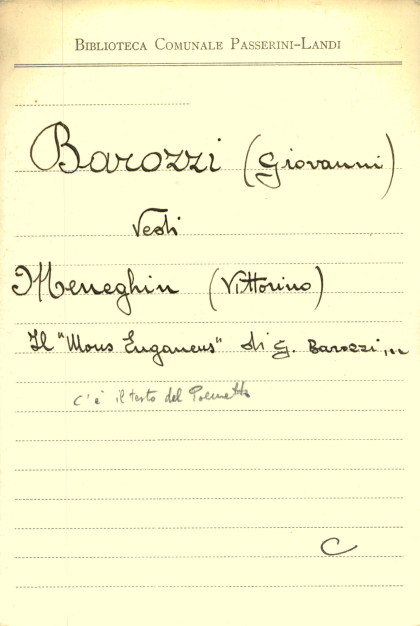 BIBLIOTECA COMUNALE PASSERINI-LANDI
Barozzi (Giovanni)
Vedi
Meneghin (Vittorino)
Il "Mons Euganeus" di G. Barozzi...
c'è il testo del Poemetto
C